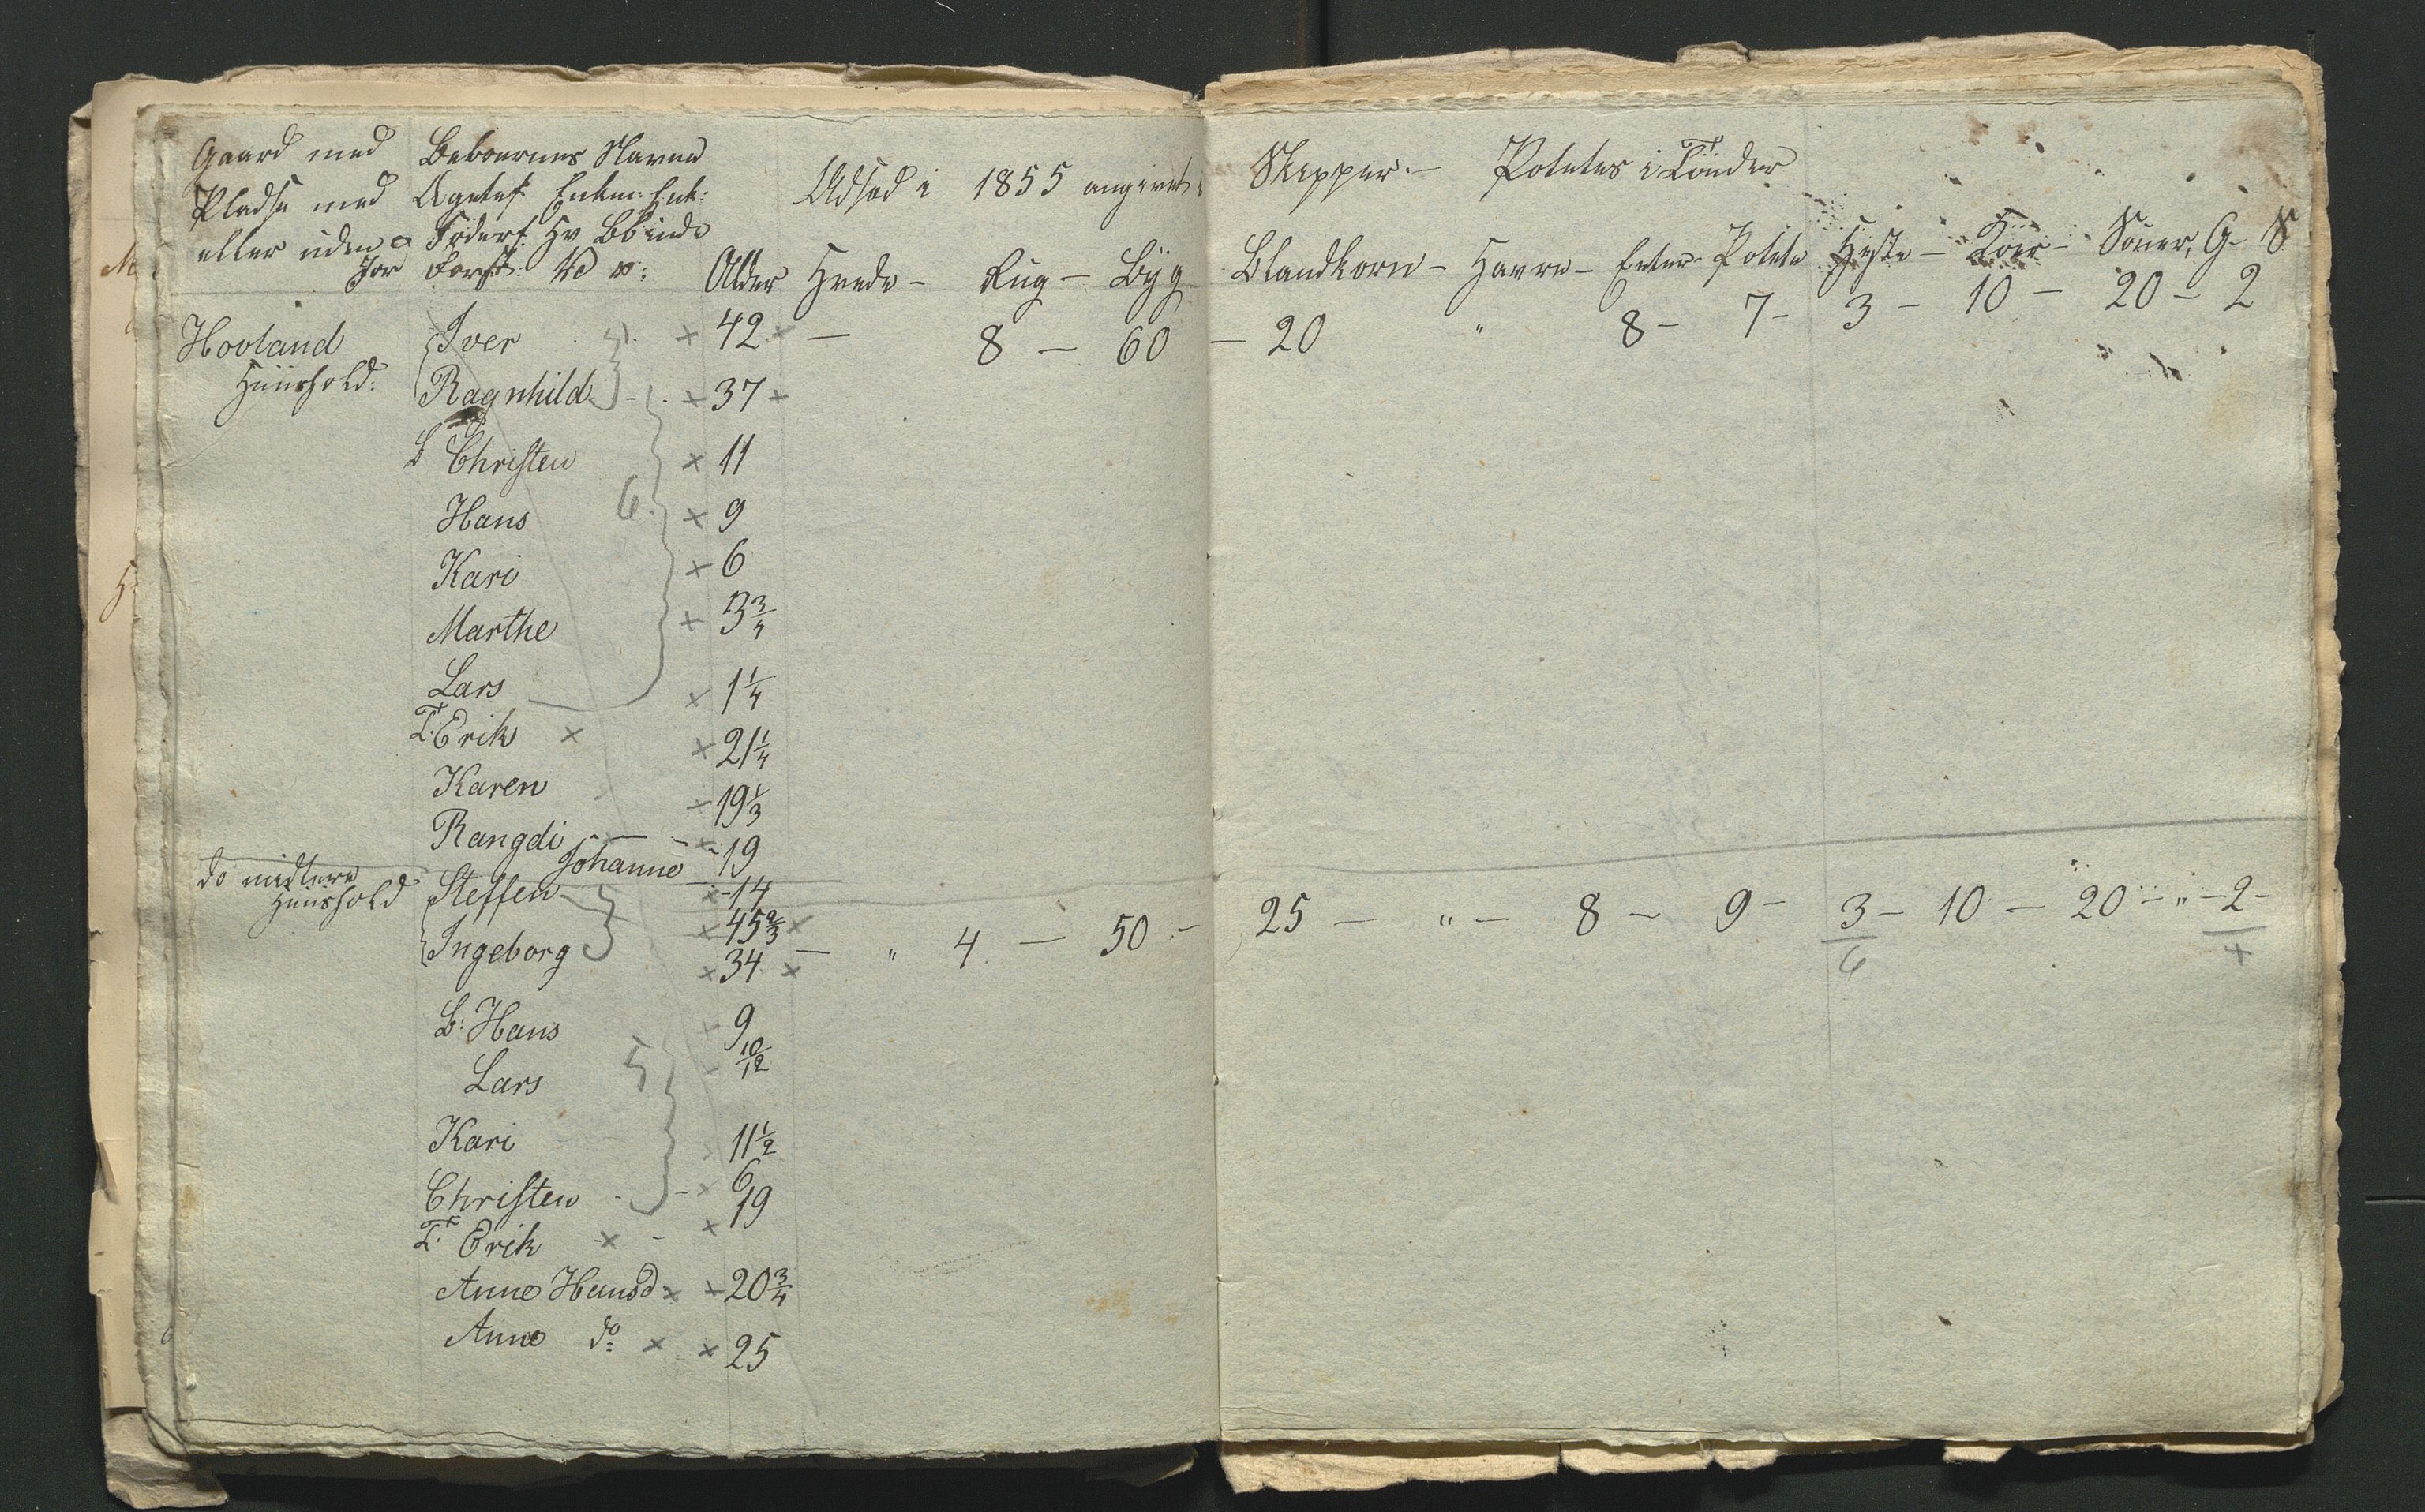 Gaard med Beboernes Navne Udsæd i 1855 angivet i Skipper.— Poteter i Tönder
Pladse med Egtef: Enkm: Enk:
eller uden Föderf. Hv Blinde
Jor Forst: Alder Hvede — Rug — Byg Blandkorn — Havre — Erter Potete Heste — Köer — Souer, G. S
Hovland Iver 42 — 8 — 60 — 20 " 8 — 7 — 3 — 10 — 20 — 2
Huushold: Ragnhild 37
B Christen 11
Hans 6 9
Kari 6
Marthe 3 3/4
Lars 1 1/4
T. Erik 21 1/4
Karen 19 1/3
Rangdi 19
Johanne 14
do midtere Steffen 45 2/3
Huushold Ingeborg 34 — " 4 — 50 — 25 — " — 8 — 9 — 3 — 10 — 20 — " — 2 —
6 4
B: Hans 9
Lars 5 10/12
Kari 11 1/2
Christen 6
T. Erik 19
Anne Hansd 20 3/4
Anne do 25